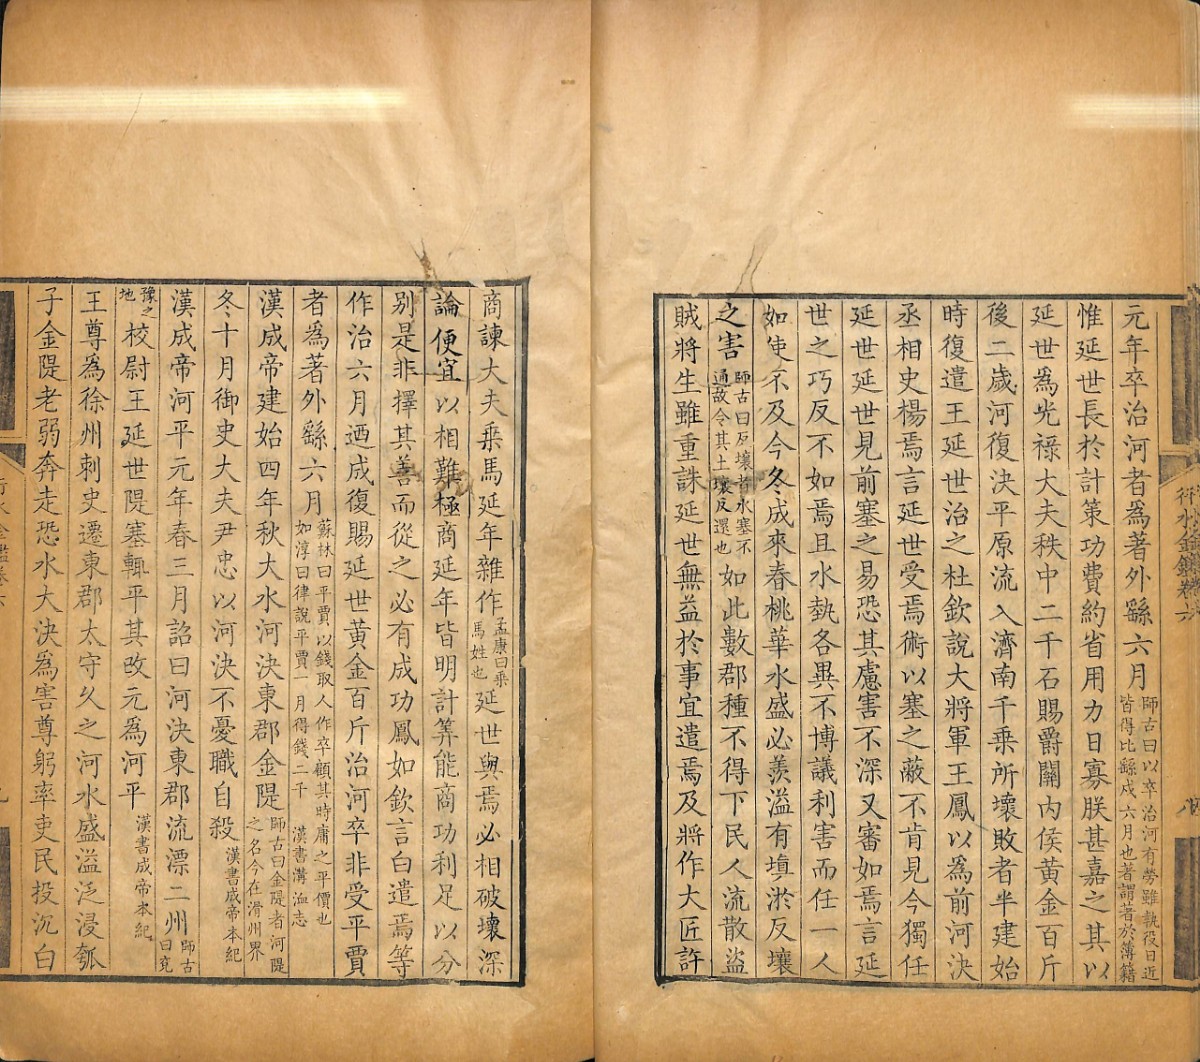 行水金鑑卷六
八
元年卒治河者爲著外繇六月師古曰以卒治河有勞雖執役日近皆得比繇戍六月也著謂著於簿籍
惟延世長於計策功費約省用力日寡朕甚嘉之其以
延世爲光祿大夫秩中二千石賜爵關內侯黃金百斤
後二歲河復決平原流入濟南千乘所壞敗者半建始
時復遣王延世治之杜欽說大將軍王鳳以爲前河決
丞相史楊焉言延世受焉術以塞之蔽不肯見今獨任
延世延世見前塞之易恐其慮害不深又審如焉言延
世之巧反不如焉且水埶各異不博議利害而任一人
如使不及今冬成來春桃華水盛必羨溢有塡淤反壤
之害師古曰反壤者水塞不通故令其土壤反還也如此數郡種不得下民人流散盜
賊將生雖重誅延世無益於事宜遣焉及將作大匠許
商諫大夫乘馬延年雜作孟康曰乘馬姓也延世與焉必相破壞深
論便宜以相難極商延年皆明計筭能商功利足以分
别是非擇其善而從之必有成功鳳如欽言白遣焉等
作治六月迺成復賜延世黃金百斤治河卒非受平賈
者爲著外繇六月蘇林曰平賈以錢取人作卒顧其時庸之平價也如淳曰律說平賈一月得錢二千 漢書溝洫志
漢成帝建始四年秋大水河決東郡金隄師古曰金隄者河隄之名今在滑州界
冬十月御史大夫尹忠以河決不憂職自殺漢書成帝本紀
漢成帝河平元年春三月詔曰河決東郡流漂二州師古曰兗
豫之地校尉王延世隄塞輒平其改元爲河平漢書成帝本紀
王尊爲徐州刺史遷東郡太守久之河水盛溢泛浸瓠
子金隄老弱奔走恐水大決爲害尊躬率吏民投沉白
行水金鑑卷六
九